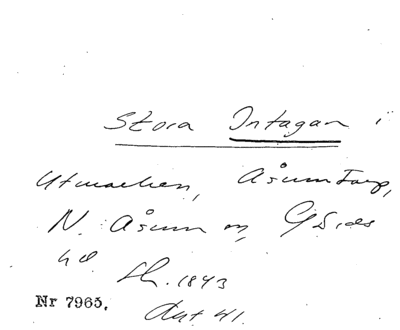 Stora Intagan i
Utmarken, Åsumtorp,
N. Åsum sn, Gärds
hd.
Sk. 1843
Nr 7965.
Akt 41.